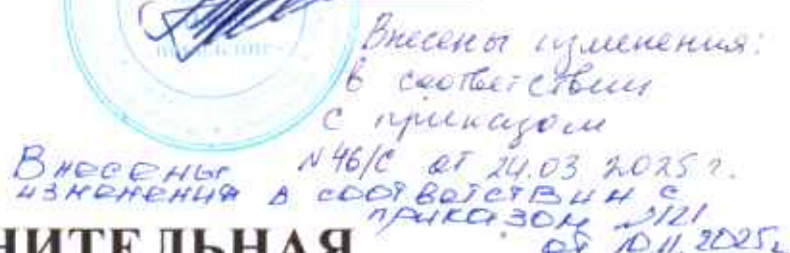 Внесены изменения:
в соответствии
с приказом
N 46/С от 24.03 2025 г.
Внесены
изменения в соответствии с
приказом 2121
от 10.11.2025г
НИТЕЛЬНАЯ